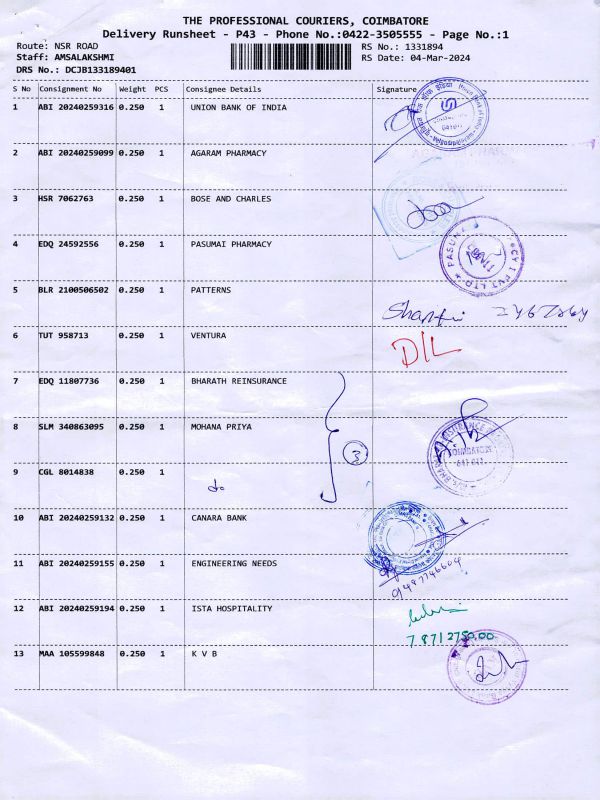 THE PROFESSIONAL COURIERS, COIMBATORE
Delivery Runsheet - P43 - Phone No.:0422-3505555 - Page No.:1
Route: NSR ROAD
RS No.: 1331894
Staff: AMSALAKSHMI
RS Date: 04-Mar-2024
DRS No.: DCJB133189401
S No Consignment No Weight PCS Consignee Details Signature
1 ABI 20240259316 0.250 1 UNION BANK OF INDIA
2 ABI 20240259099 0.250 1 AGARAM PHARMACY
3 HSR 7062763 0.250 1 BOSE AND CHARLES
4 EDQ 24592556 0.250 1 PASUMAI PHARMACY
5 BLR 2100506502 0.250 1 PATTERNS
Shanti
6 TUT 958713 0.250 1 VENTURA
D/L
7 EDQ 11807736 0.250 1 BHARATH REINSURANCE
8 SLM 340863095 0.250 1 MOHANA PRIYA
3
9 CGL 8014838 0.250 1
do
10 ABI 20240259132 0.250 1 CANARA BANK
11 ABI 20240259155 0.250 1 ENGINEERING NEEDS
9487746604
12 ABI 20240259194 0.250 1 ISTA HOSPITALITY
7871275000
13 MAA 105599848 0.250 1 K V B